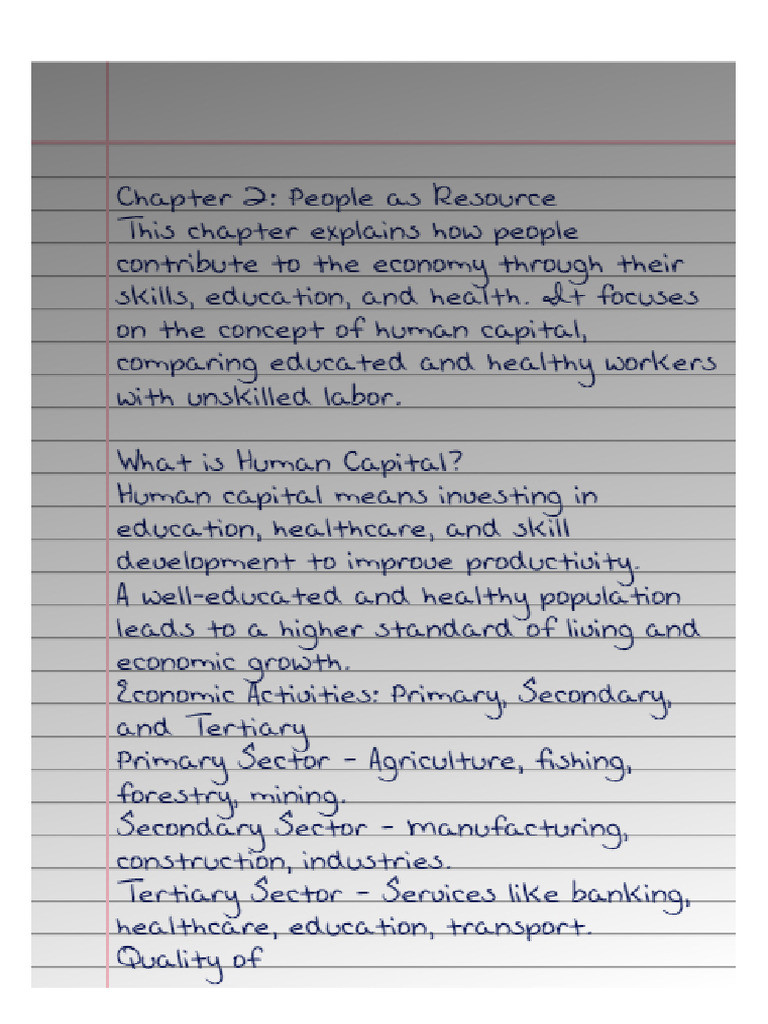 Chapter 2: People as Resource
This chapter explains how people
contribute to the economy through their
skills, education, and health. It focuses
on the concept of human capital,
comparing educated and healthy workers
with unskilled labor.
What is Human Capital?
Human capital means investing in
education, healthcare, and skill
development to improve productivity.
A well-educated and healthy population
leads to a higher standard of living and
economic growth.
Economic Activities: Primary, Secondary,
and Tertiary
Primary Sector - Agriculture, fishing,
forestry, mining.
Secondary Sector - manufacturing,
construction, industries.
Tertiary Sector - Services like banking,
healthcare, education, transport.
Quality of